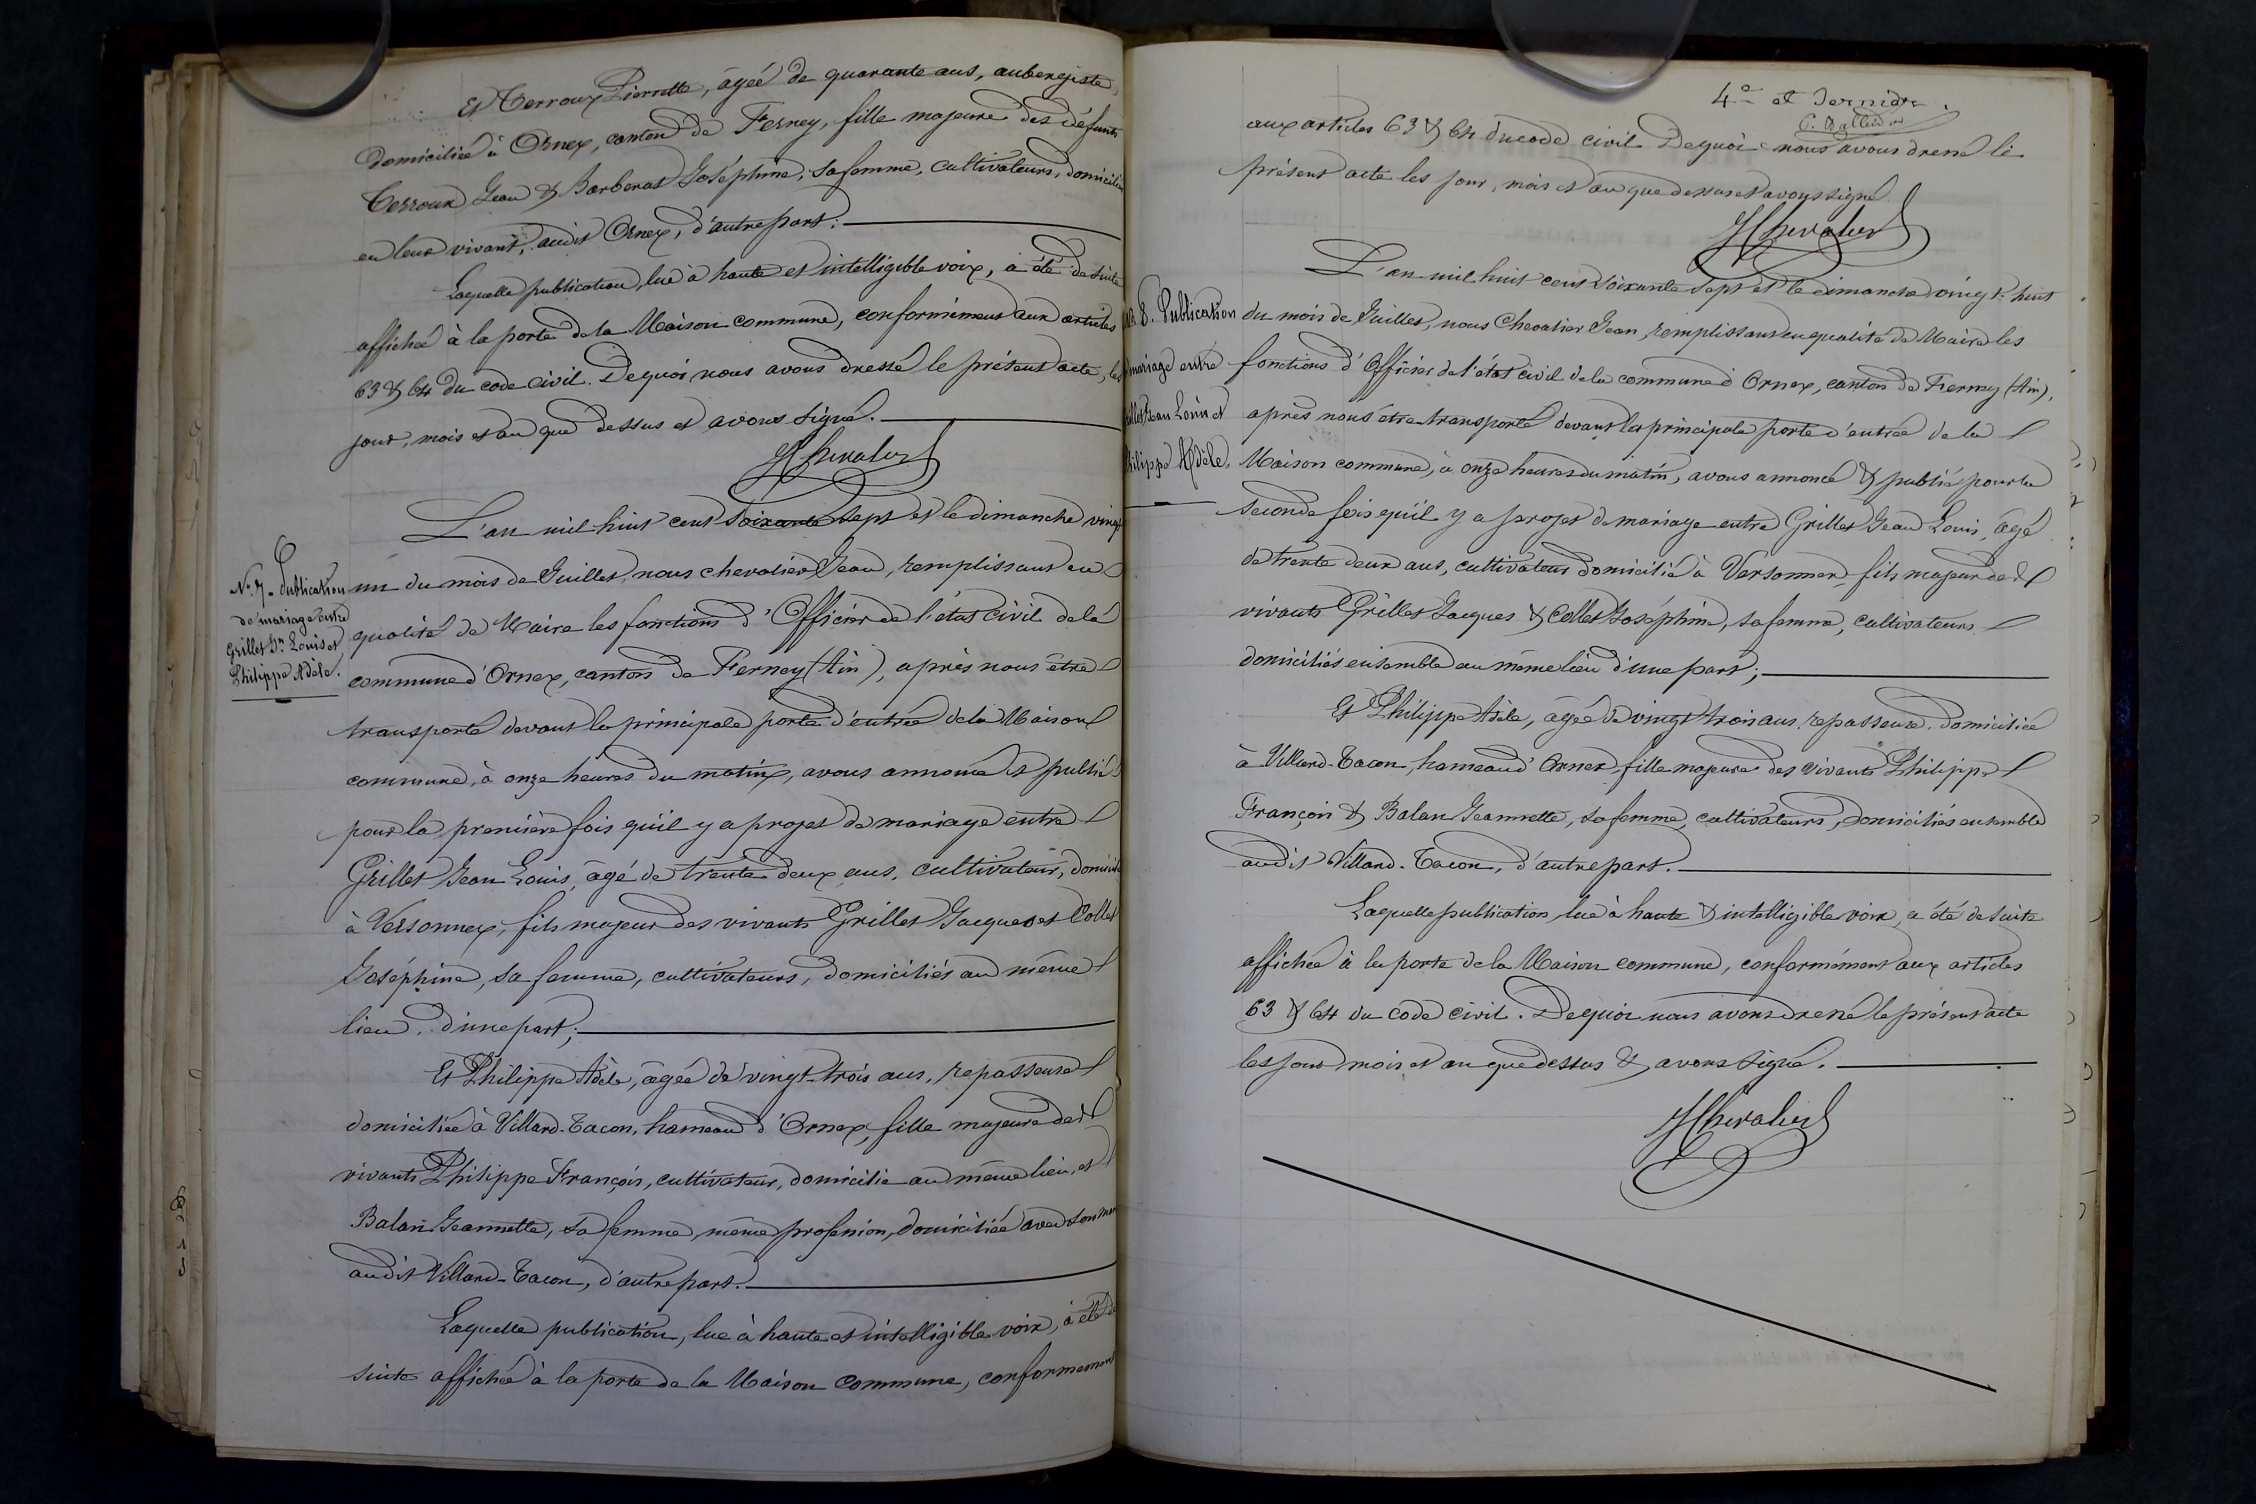 Et Terroux Pierrette, âgée de quarante ans, aubergiste,
domiciliée à Ornex, canton de Ferney, fille majeure des défunts
Terroux Jean & Barberat Joséphine, sa femme, cultivateurs, domiciliés
en leur vivant, audit Ornex, d'autre part.
Laquelle publication, lue à haute et intelligible voix, a été de suite
affichée à la porte de la Maison commune, conformément aux articles
63 & 64 du code civil. De quoi nous avons dressé le présent acte, les
jour, mois et an que dessus et avons signé.
J Chevalier
L'an mil huit cent soixante sept et le dimanche vingt
N° 7. Publication
de mariage entre
Grillet Jn Louis et
Philippe Adèle.
un du mois de Juillet, nous Chevalier Jean, remplissant en
qualité de Maire les fonctions d'Officier de l'état civil de la
commune d'Ornex, canton de Ferney (Ain), après nous être
transporté devant la principale porte d'entrée de la Maison
commune, à onze heures du matin, avons annoncé et publié
pour la première fois qu'il y a projet de mariage entre
Grillet Jean Louis, âgé de trente deux ans, cultivateur, domicilié
à Versonnex, fils majeur des vivants Grillet Jacques et Collet
Joséphine, sa femme, cultivateurs, domiciliés au même
lieu, d'une part;
Et Philippe Adèle, âgée de vingt-trois ans, repasseuse
domiciliée à Villard-Tacon, hameau d'Ornex, fille majeure des
vivants Philippe François, cultivateur, domicilié au même lieu, et
Balan Jeannette, sa femme, même profession, domiciliée avec son mari
audit Villard-Tacon, d'autre part.
Laquelle publication, lue à haute et intelligible voix, a été de
suite affichée à la porte de la Maison commune, conformément
4e et dernière.
aux articles 63 & 64 du code civil. De quoi nous avons dressé le
présent acte les jour, mois et an que dessus et avons signé
J Chevalier
L'an mil huit cent soixante sept et le dimanche vingt-huit
8. Publication
mariage entre
Jean Louis et
Philippe Adèle.
du mois de Juillet, nous Chevalier Jean, remplissant en qualité de Maire les
fonctions d'Officier de l'état civil de la commune d'Ornex, canton de Ferney (Ain),
après nous être transporté devant la principale porte d'entrée de la
Maison commune, à onze heures du matin, avons annoncé & publié pour la
seconde fois qu'il y a projet de mariage entre Grillet Jean Louis, âgé
de trente deux ans, cultivateur domicilié à Versonnex fils majeur des
vivants Grillet Jacques & Collet Joséphine, sa femme, cultivateurs
domiciliés ensemble au même lieu d'une part;
Et Philippe Adèle, âgée de vingt trois ans, repasseuse, domiciliée
à Villard-Tacon, hameau d'Ornex, fille majeure des vivants Philippe
François & Balan Jeannette, sa femme, cultivateurs, domiciliés ensemble
audit Villard-Tacon, d'autre part.
Laquelle publication, lue à haute & intelligible voix, a été de suite
affichée à la porte de la Maison commune, conformément aux articles
63 & 64 du code civil. De quoi nous avons dressé le présent acte
les jour mois et an que dessus & avons signé.
J Chevalier